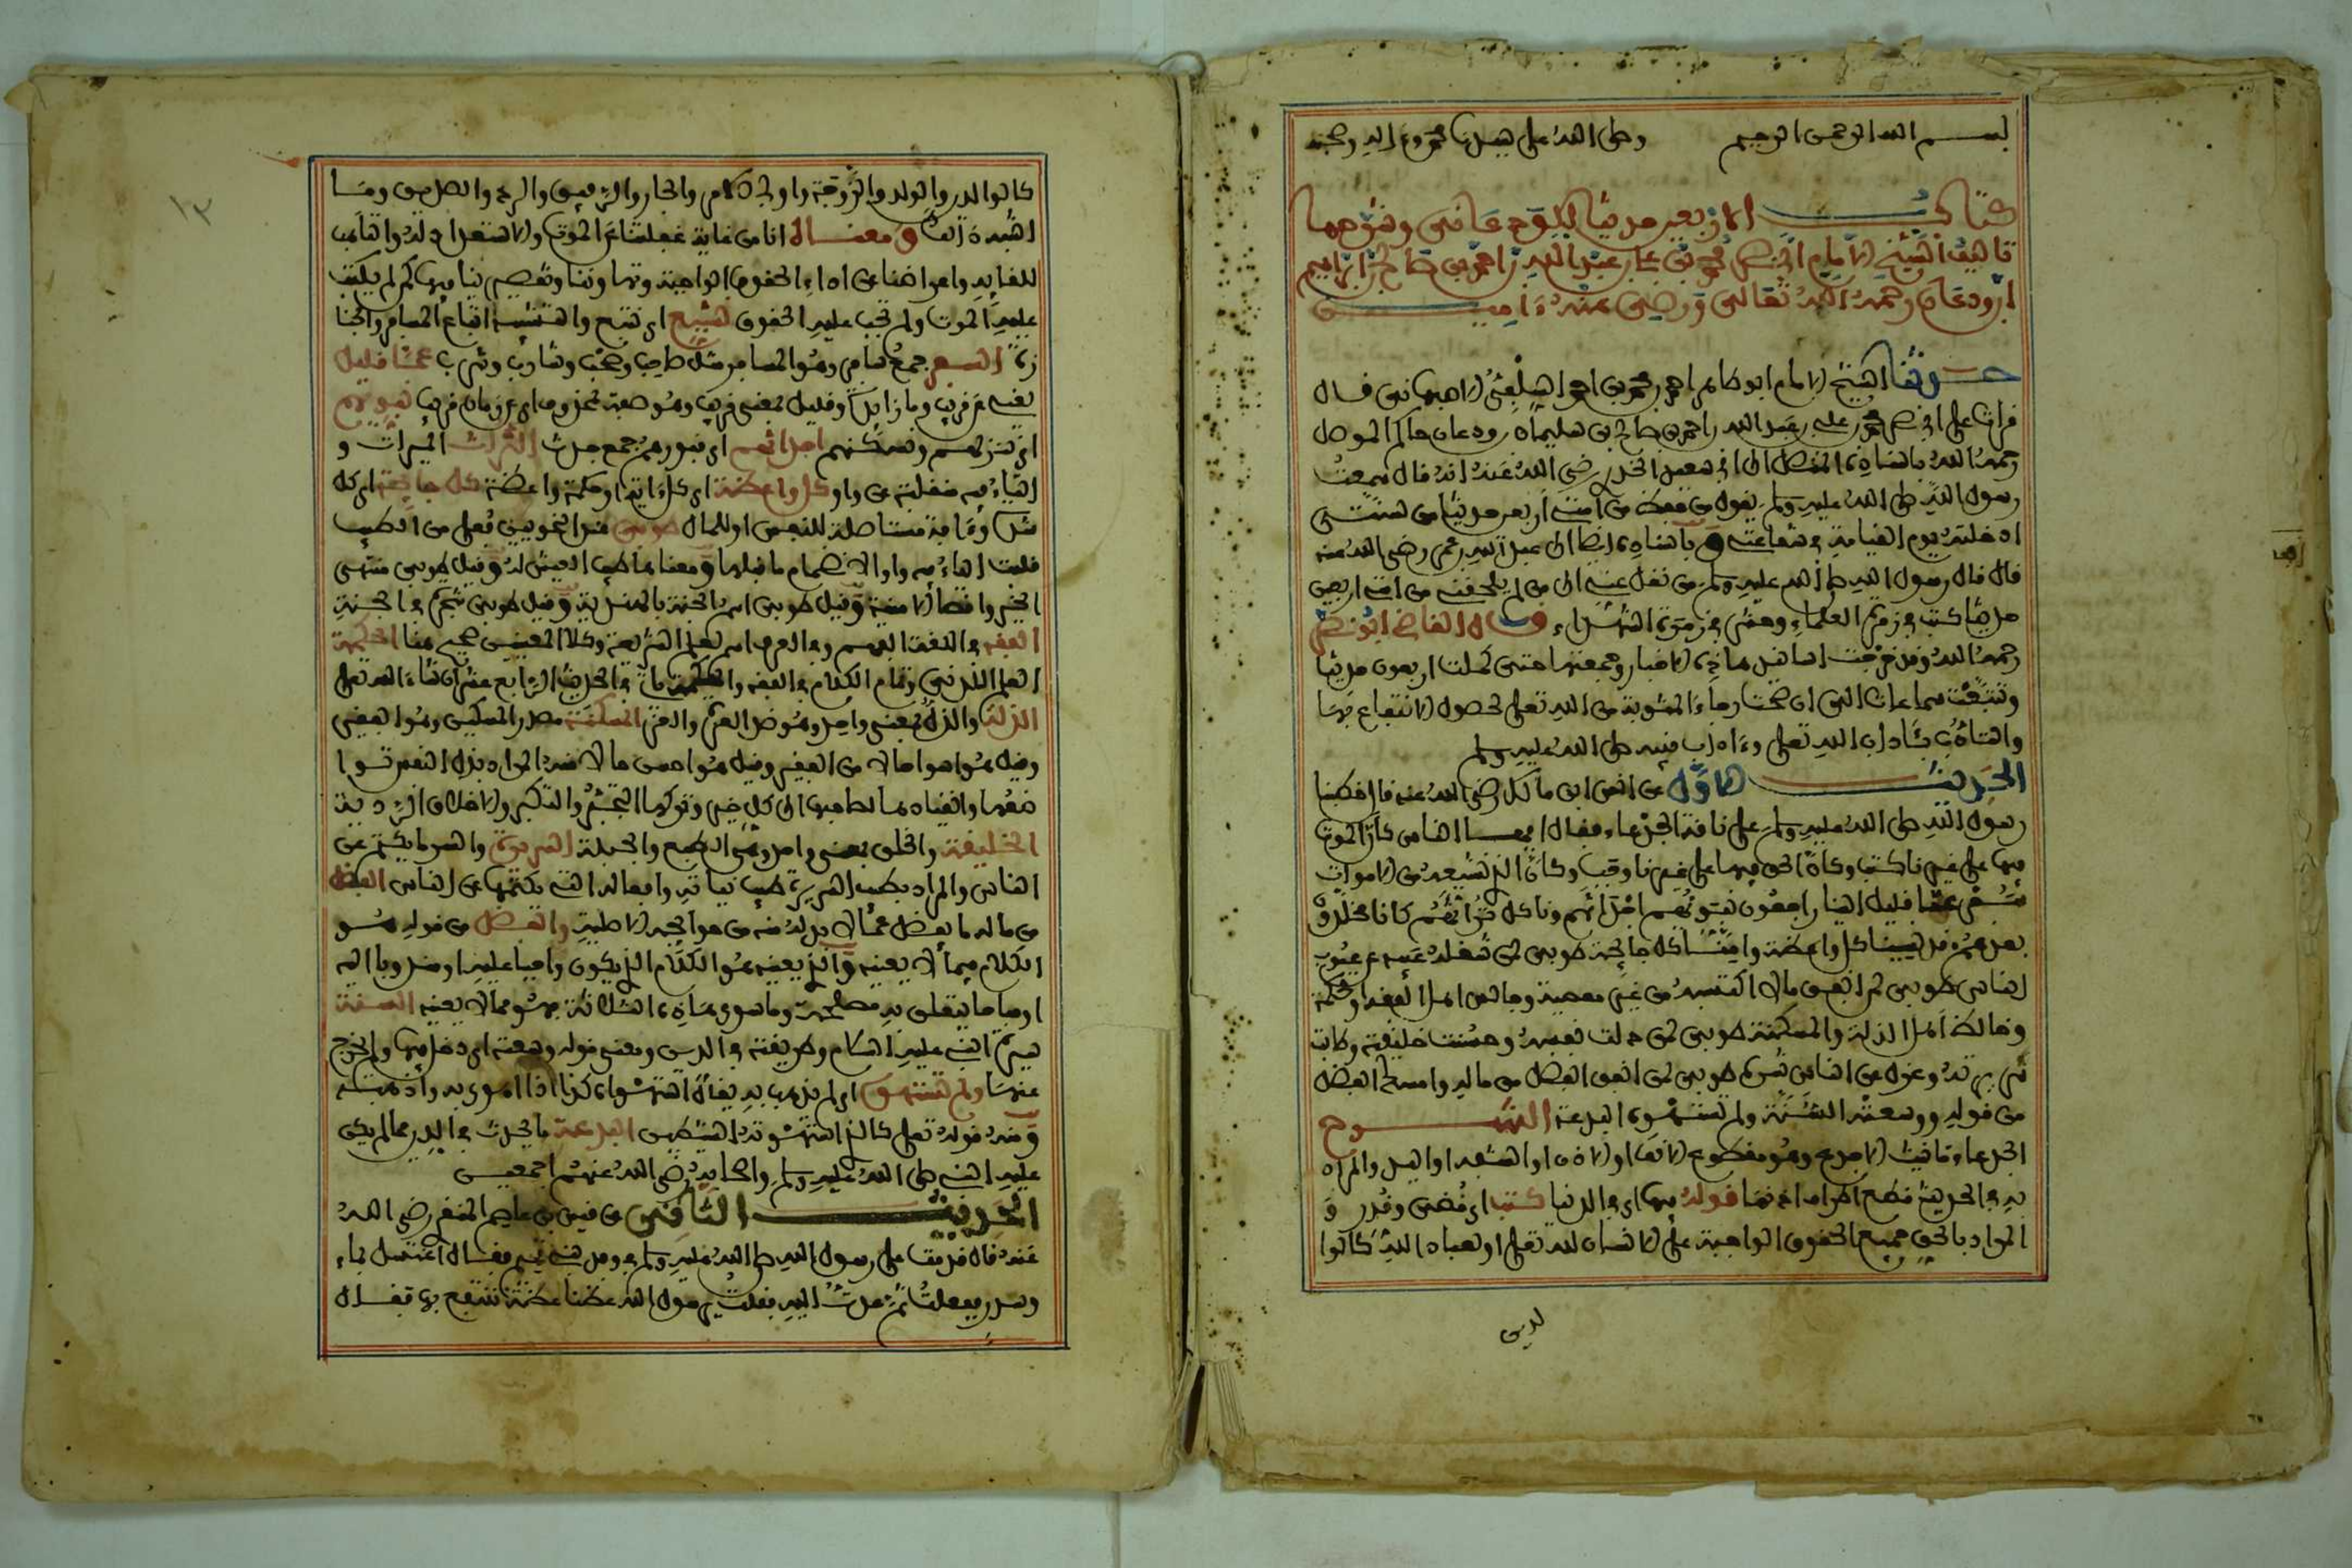 بسم الله الرحمن الرحيم وصلى الله على سيدنا محمد وءاله وصحبه
كتاب الاربعين حديثا الودعاني وشرحها
تاليف الشيخ الامام ابي نصر محمد بن علي بن عبد الله بن احمد بن صالح بن ابراهيم
ابن ودعان رحمه الله تعالى ورضي عنه ءامين
حدثنا الشيخ الامام ابو طاهر احمد بن محمد بن احمد السلفي الاصبهاني قال
قرات على ابي نصر محمد بن علي بن عبد الله بن احمد بن صالح بن سليمان بن ودعان حاكم الموصل
رحمه الله باسناده المتصل الى ابي سعيد الخدري رضي الله عنه انه قال سمعت
رسول الله صلى الله عليه وسلم يقول من حفظ من امتي اربعين حديثا من سنتي
ادخلته يوم القيامة في شفاعتي وباسناده ايضا الى عبد الله بن عمر رضي الله عنه
قال قال رسول الله صلى الله عليه وسلم من نقل عني الى من لم يلحقني من امتي اربعين
حديثا كتب في زمرة العلماء وحشر في زمرة الشهداء وقال القاضي ابو نصر
رحمه الله وقد خرجت اسانيد هاذه الاخبار وجمعتها حتى كملت اربعون حديثا
وتتبعت سماعات التي ان صحت رجاء المثوبة من الله تعلى لحصول الانتفاع بها
والتادب بئاداب الله تعلى وءاداب نبيه صلى الله عليه وسلم
الحديث الاول عن انس ابن مالك رضي الله عنه قال خطبنا
رسول الله صلى الله عليه وسلم على ناقته الجدعاء فقال ايها الناس كأن الموت
فيها على غيرنا كتب وكأن الحق فيها على غيرنا وجب وكأن الذي نشيع من الاموات
سفر عما قليل الينا راجعون نبوئهم اجداثهم وناكل تراثهم كانا مخلدون
بعدهم قد نسينا كل واعظة وامنا كل جائحة طوبى لمن شغله عيبه عن عيوب
الناس طوبى لمن انفق مالا اكتسبه من غير معصية وجالس اهل الفقه والحكمة
وخالط اهل الذلة والمسكنة طوبى لمن ذلت نفسه وحسنت خليقته وطابت
سريرته وعزل عن الناس شره طوبى لمن انفق الفضل من ماله وامسك الفضل
من قوله ووسعته السنة ولم تستهوه البدعة الشرح
الجدعاء تانيث الاجدع وهو مقطوع الانف او الاذن او الشفة او اليد والمراد
به في الحديث قطع اطراف اذنها قوله فيها اي في الدنيا كتب اي قضي وقدر و
المراد بالحق جميع الحقوق الواجبة على الانسان لله تعلى او لعباد الله كالوا
لدين
١٣
كالوالدين والولد والزوجة واولي الارحام والجار والرفيق والرحم والصديق وما
اشبه ذالك ومعناه انا من غاية غفلتنا عن الموت والاستعداد له والتاهب
للقايه واعراضنا عن اداء الحقوق الواجبة وتهاوننا وتقصيرنا فيها كمن لم يكتب
عليه الموت ولم تجب عليه الحقوق نشيع اي نتبع والتشييع اتباع المسافر والجنا
زة السفر جمع سافر وهو المسافر مثل صاحب وصحب وشارب وشرب عما قليل
يعني عن قريب وما زايدة وقليل بمعنى قريب وهو صفة محذوف اي عن زمان قريب نبوئهم
اي ننزلهم ونسكنهم اجداثهم اي قبورهم جمع جدث التراث الميراث و
التاء فيه منقلبة عن واو كل واعظة اي كل ءاية او كلمة واعظة كل جائحة اي كل
شدة وءافة مستاصلة للنفس او للمال طوبى عند النحويين فعلى من الطيب
قلبت الياء فيه واوا لانضمام ما قبلها ومعناها طيب العيش له وقيل طوبى منتهى
الخير واقصا الامنية وقيل طوبى اسم الجنة بالهندية وقيل طوبى شجرة في الجنة
الفقه في اللغة الفهم وفي العرف اسم لعلم الشريعة وكلا المعنيين صحيح هنا الحكمة
العلم اللدني وتمام الكلام في الفقه والحكمة يات في الحديث الرابع عشر ان شاء الله تعلى
الذلة والذل بمعنى واحد وهو ضد العز والعزة المسكنة مصدر المسكين وهو الفقير
وقيل هو اسوا حالا من الفقير وقيل هو احسن حالا منه المراد بذل النفس تواضعها
ضعها وانقياد ها لصاحبها الى كل خير وتركها التجبر والتكبر والاخلاق الردية
الخليقة والخلق بمعنى واحد وهي الطبع والجبلة السريرة والسر ما يكتم عن
الناس والمراد بطيب السريرة طيب نياته وافعاله التي يكتمها عن الناس الفضل
من ماله ما يفضل عما لا بد له منه من حوائجه الاصلية والفضل من قوله هو
الكلام فيما لا يعنيه والذي يعنيه هو الكلام الذي يكون واجبا عليه او مندوبا اليه
او مباحا يتعلق به مصلحة وما سوى هاذه الثلاثة فهو مما لا يعنيه السنة
سيرة النبي عليه السلام وطريقته في الدين ومعنى قوله وسعته اي دخل فيها ولم يخرج
عنها ولم تستهوه اي لم تذهب به يقال استهواه كذا اذا هوى به واذهبه
ومنه قوله تعلى كالذي استهوته الشيطين البدعة ما يحدث في الدين مما لم يكن
عليه النبي صلى الله عليه وسلم واصحابه رضي الله عنهم اجمعين
الحديث الثاني عن قيس بن عاصم المنقري رضي الله
عنه قال قدمت على رسول الله صلى الله عليه وسلم في وفد بني تميم فقال اغتسل بماء
وسدر ففعلت ثم عدت اليه فقلت يا رسول الله عظنا عظة ننتفع بها فقال